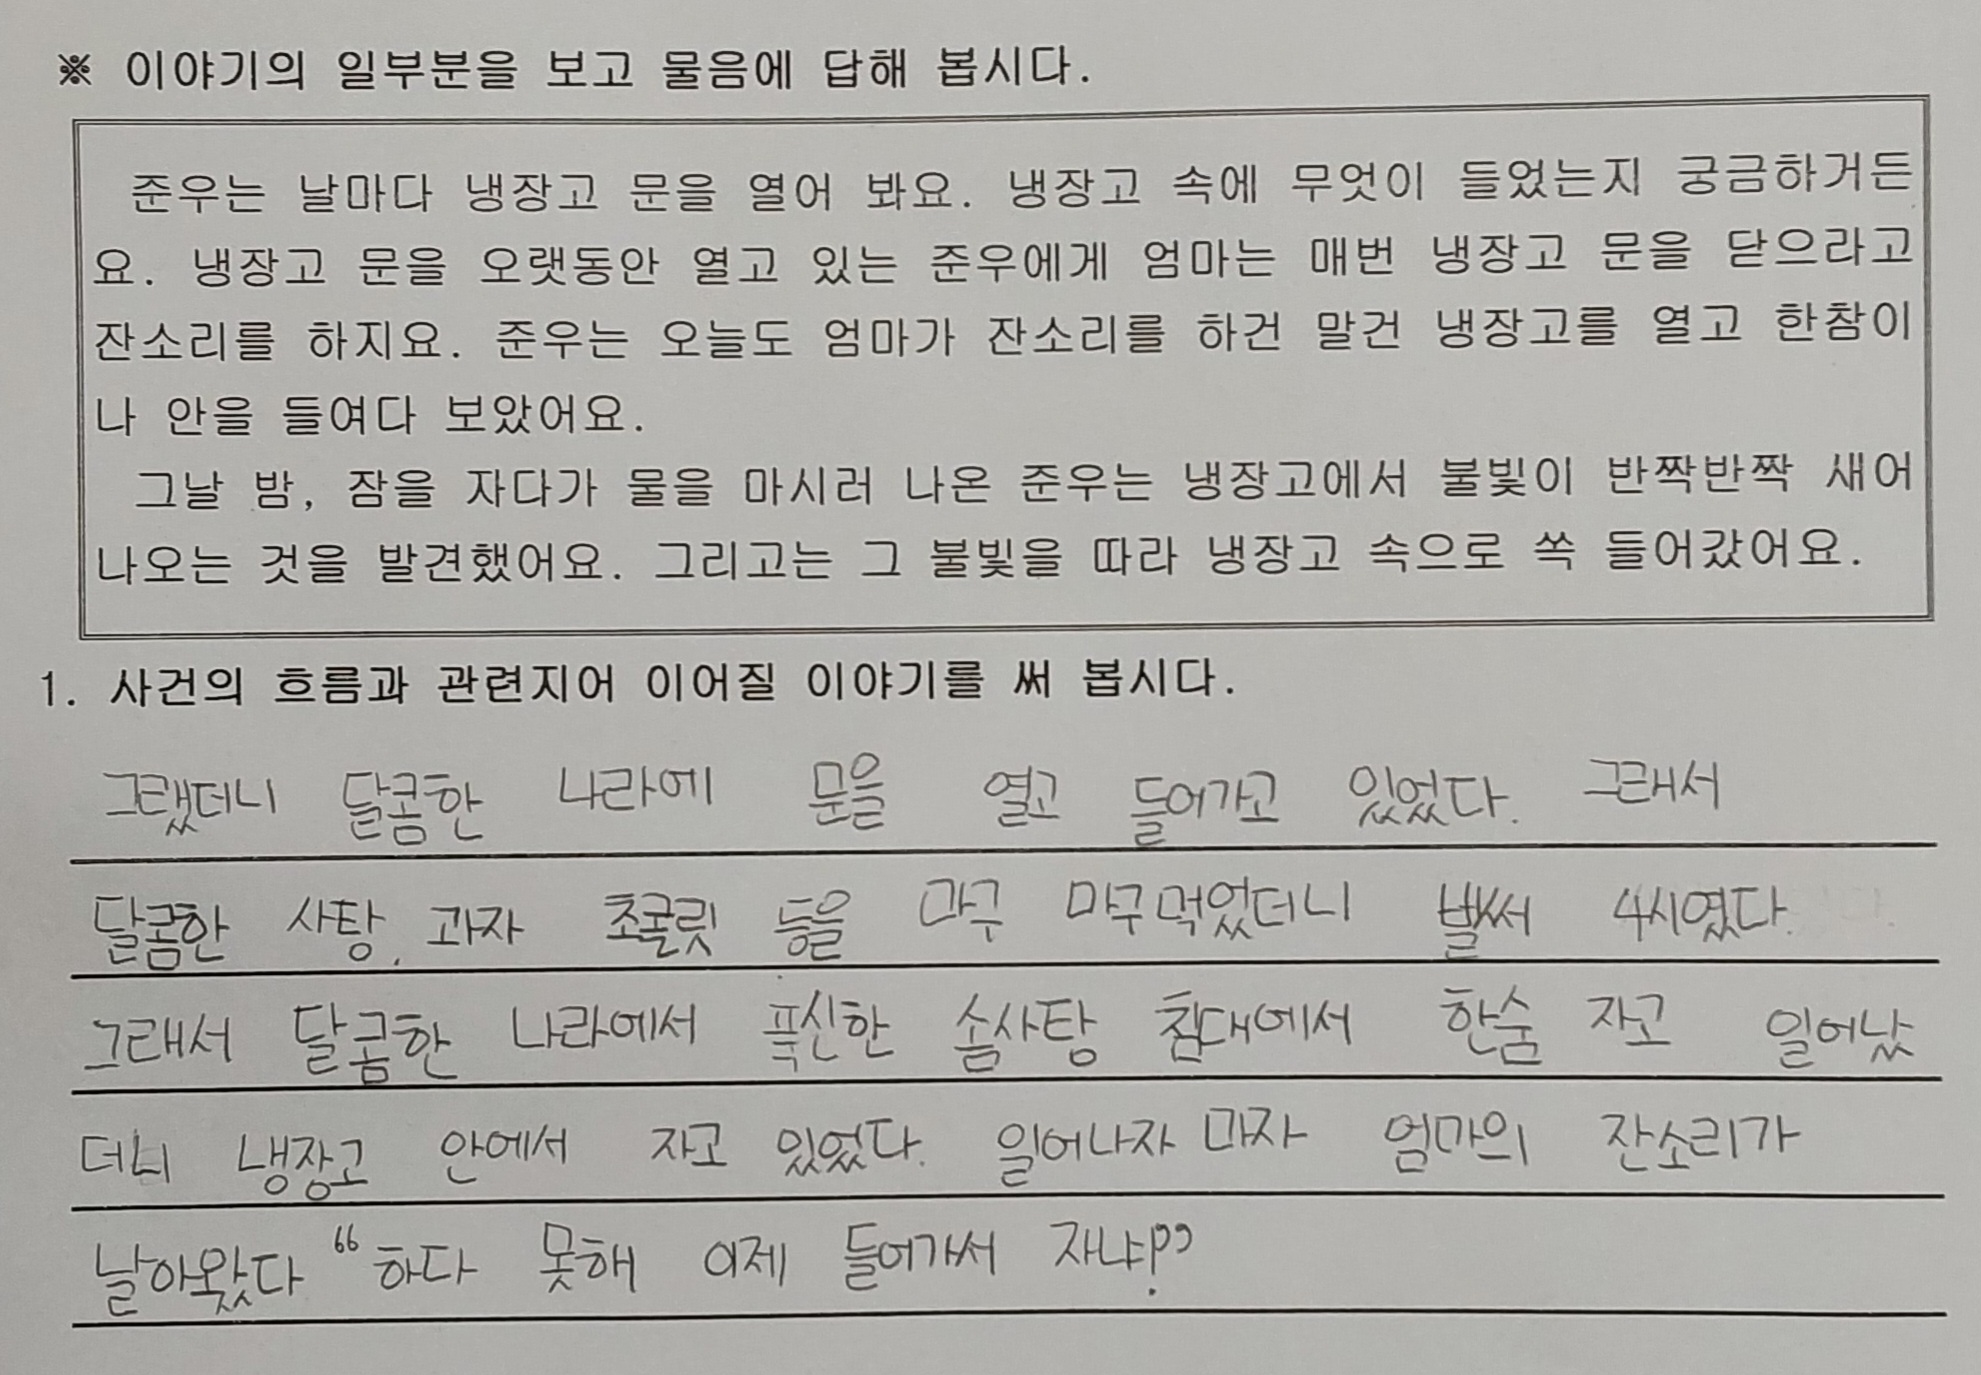 ※ 이야기의 일부분을 보고 물음에 답해 봅시다.
준우는 날마다 냉장고 문을 열어 봐요. 냉장고 속에 무엇이 들었는지 궁금하거든
요. 냉장고 문을 오랫동안 열고 있는 준우에게 엄마는 매번 냉장고 문을 닫으라고
잔소리를 하지요. 준우는 오늘도 엄마가 잔소리를 하건 말건 냉장고를 열고 한참이
나 안을 들여다 보았어요.
그날 밤, 잠을 자다가 물을 마시러 나온 준우는 냉장고에서 불빛이 반짝반짝 새어
나오는 것을 발견했어요. 그리고는 그 불빛을 따라 냉장고 속으로 쏙 들어갔어요.
1. 사건의 흐름과 관련지어 이어질 이야기를 써 봅시다.
그랬더니 달콤한 나라에 문을 열고 들어가고 있었다. 그래서
달콤한 사탕, 과자 초콜릿 등을 마구 마구먹었더니 벌써 4시였다.
그래서 달콤한 나라에서 푹신한 솜사탕 침대에서 한숨 자고 일어났
더니 냉장고 안에서 자고 있었다. 일어나자 마자 엄마의 잔소리가
날아왔다 “하다 못해 이제 들어가서 자냐!?”